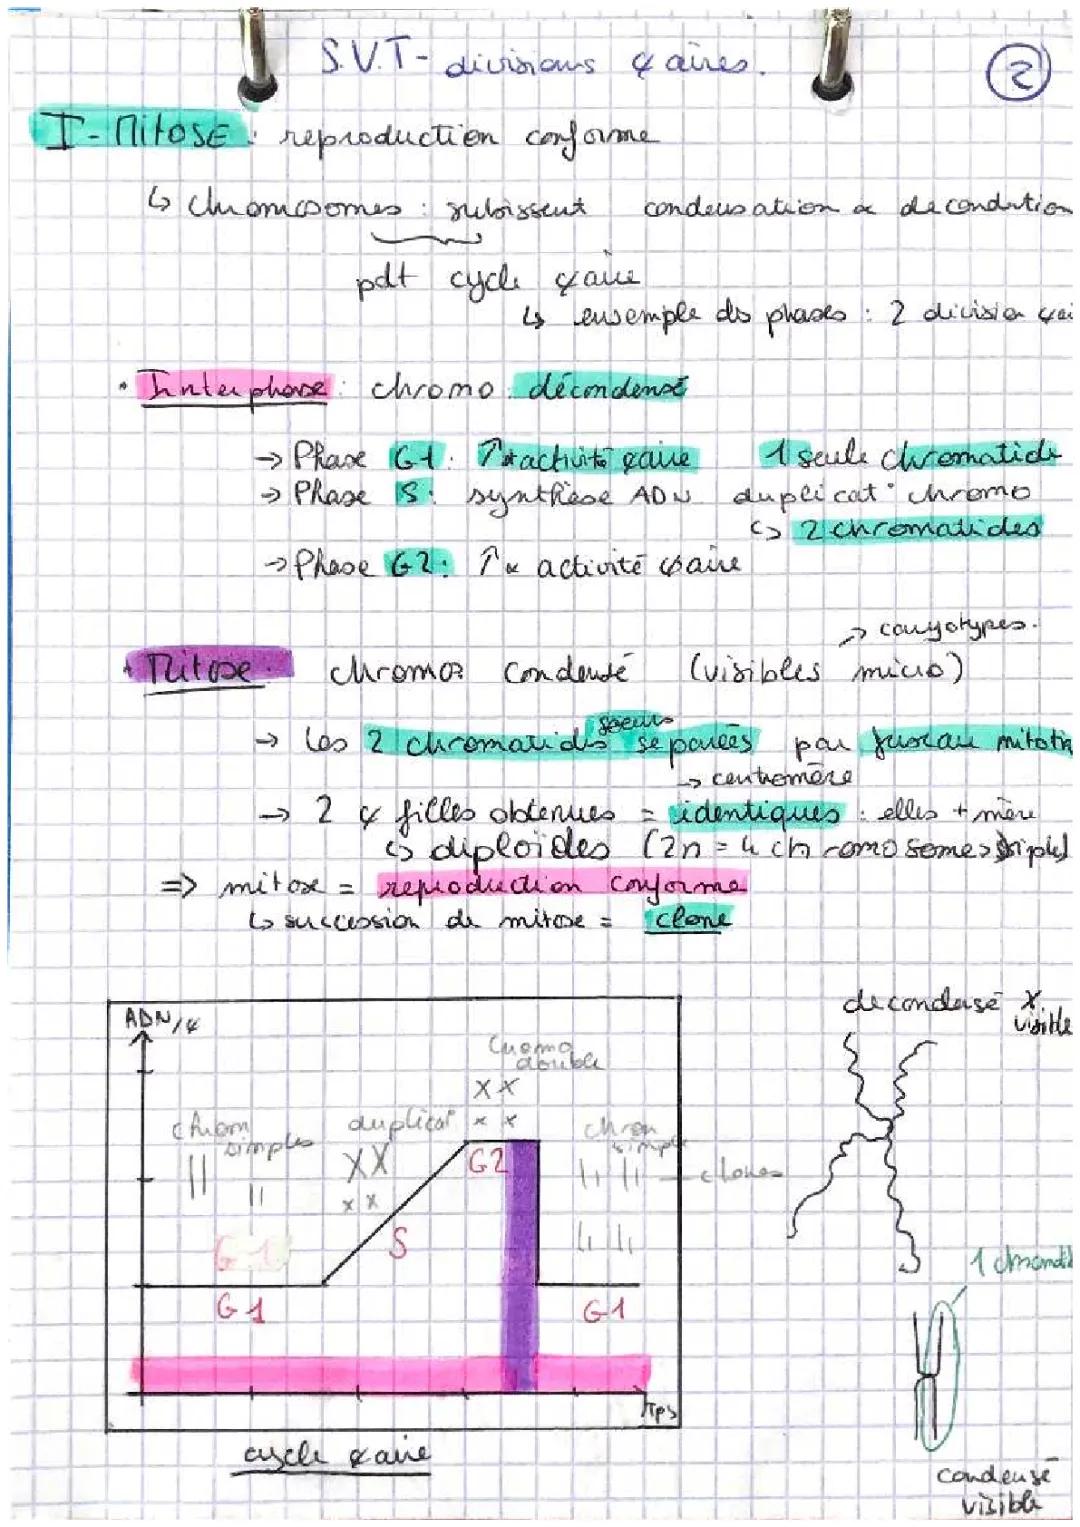 S.V.T - divisions ¢aires.
2
I - Mitose : reproduction conforme
↳ chromosomes : subissent condensation & decondution
pdt cycle ¢aire
↳ ensemple ds phases : 2 division ¢ai
• Interphase : chromo : décondensé
→ Phase G1 : ↗ activité ¢aire 1 seule chromatide
→ Phase S : synthèse ADN duplicat° chromo
↳ 2 chromatides
→ Phase G2 : ↗ activité ¢aire
→ caryotypes.
• Mitose : chromos condensé (visibles micro)
→ les 2 chromatids soeurs séparées par fuseau mitoti
→ centromère
→ 2 ¢ filles obtenues = identiques : elles + mère
↳ diploïdes (2n = 4 chromosomes simples)
=> mitose = reproduction conforme
↳ succession de mitose = clone
decondensé X visible
ADN/¢
Chomo double
XX
XX
chrom simples
duplicat°
XX
XX
chrom simple
clones
G2
S
G1
G1
G1
Tps
cycle ¢aire
1 chromatid
condensé visible